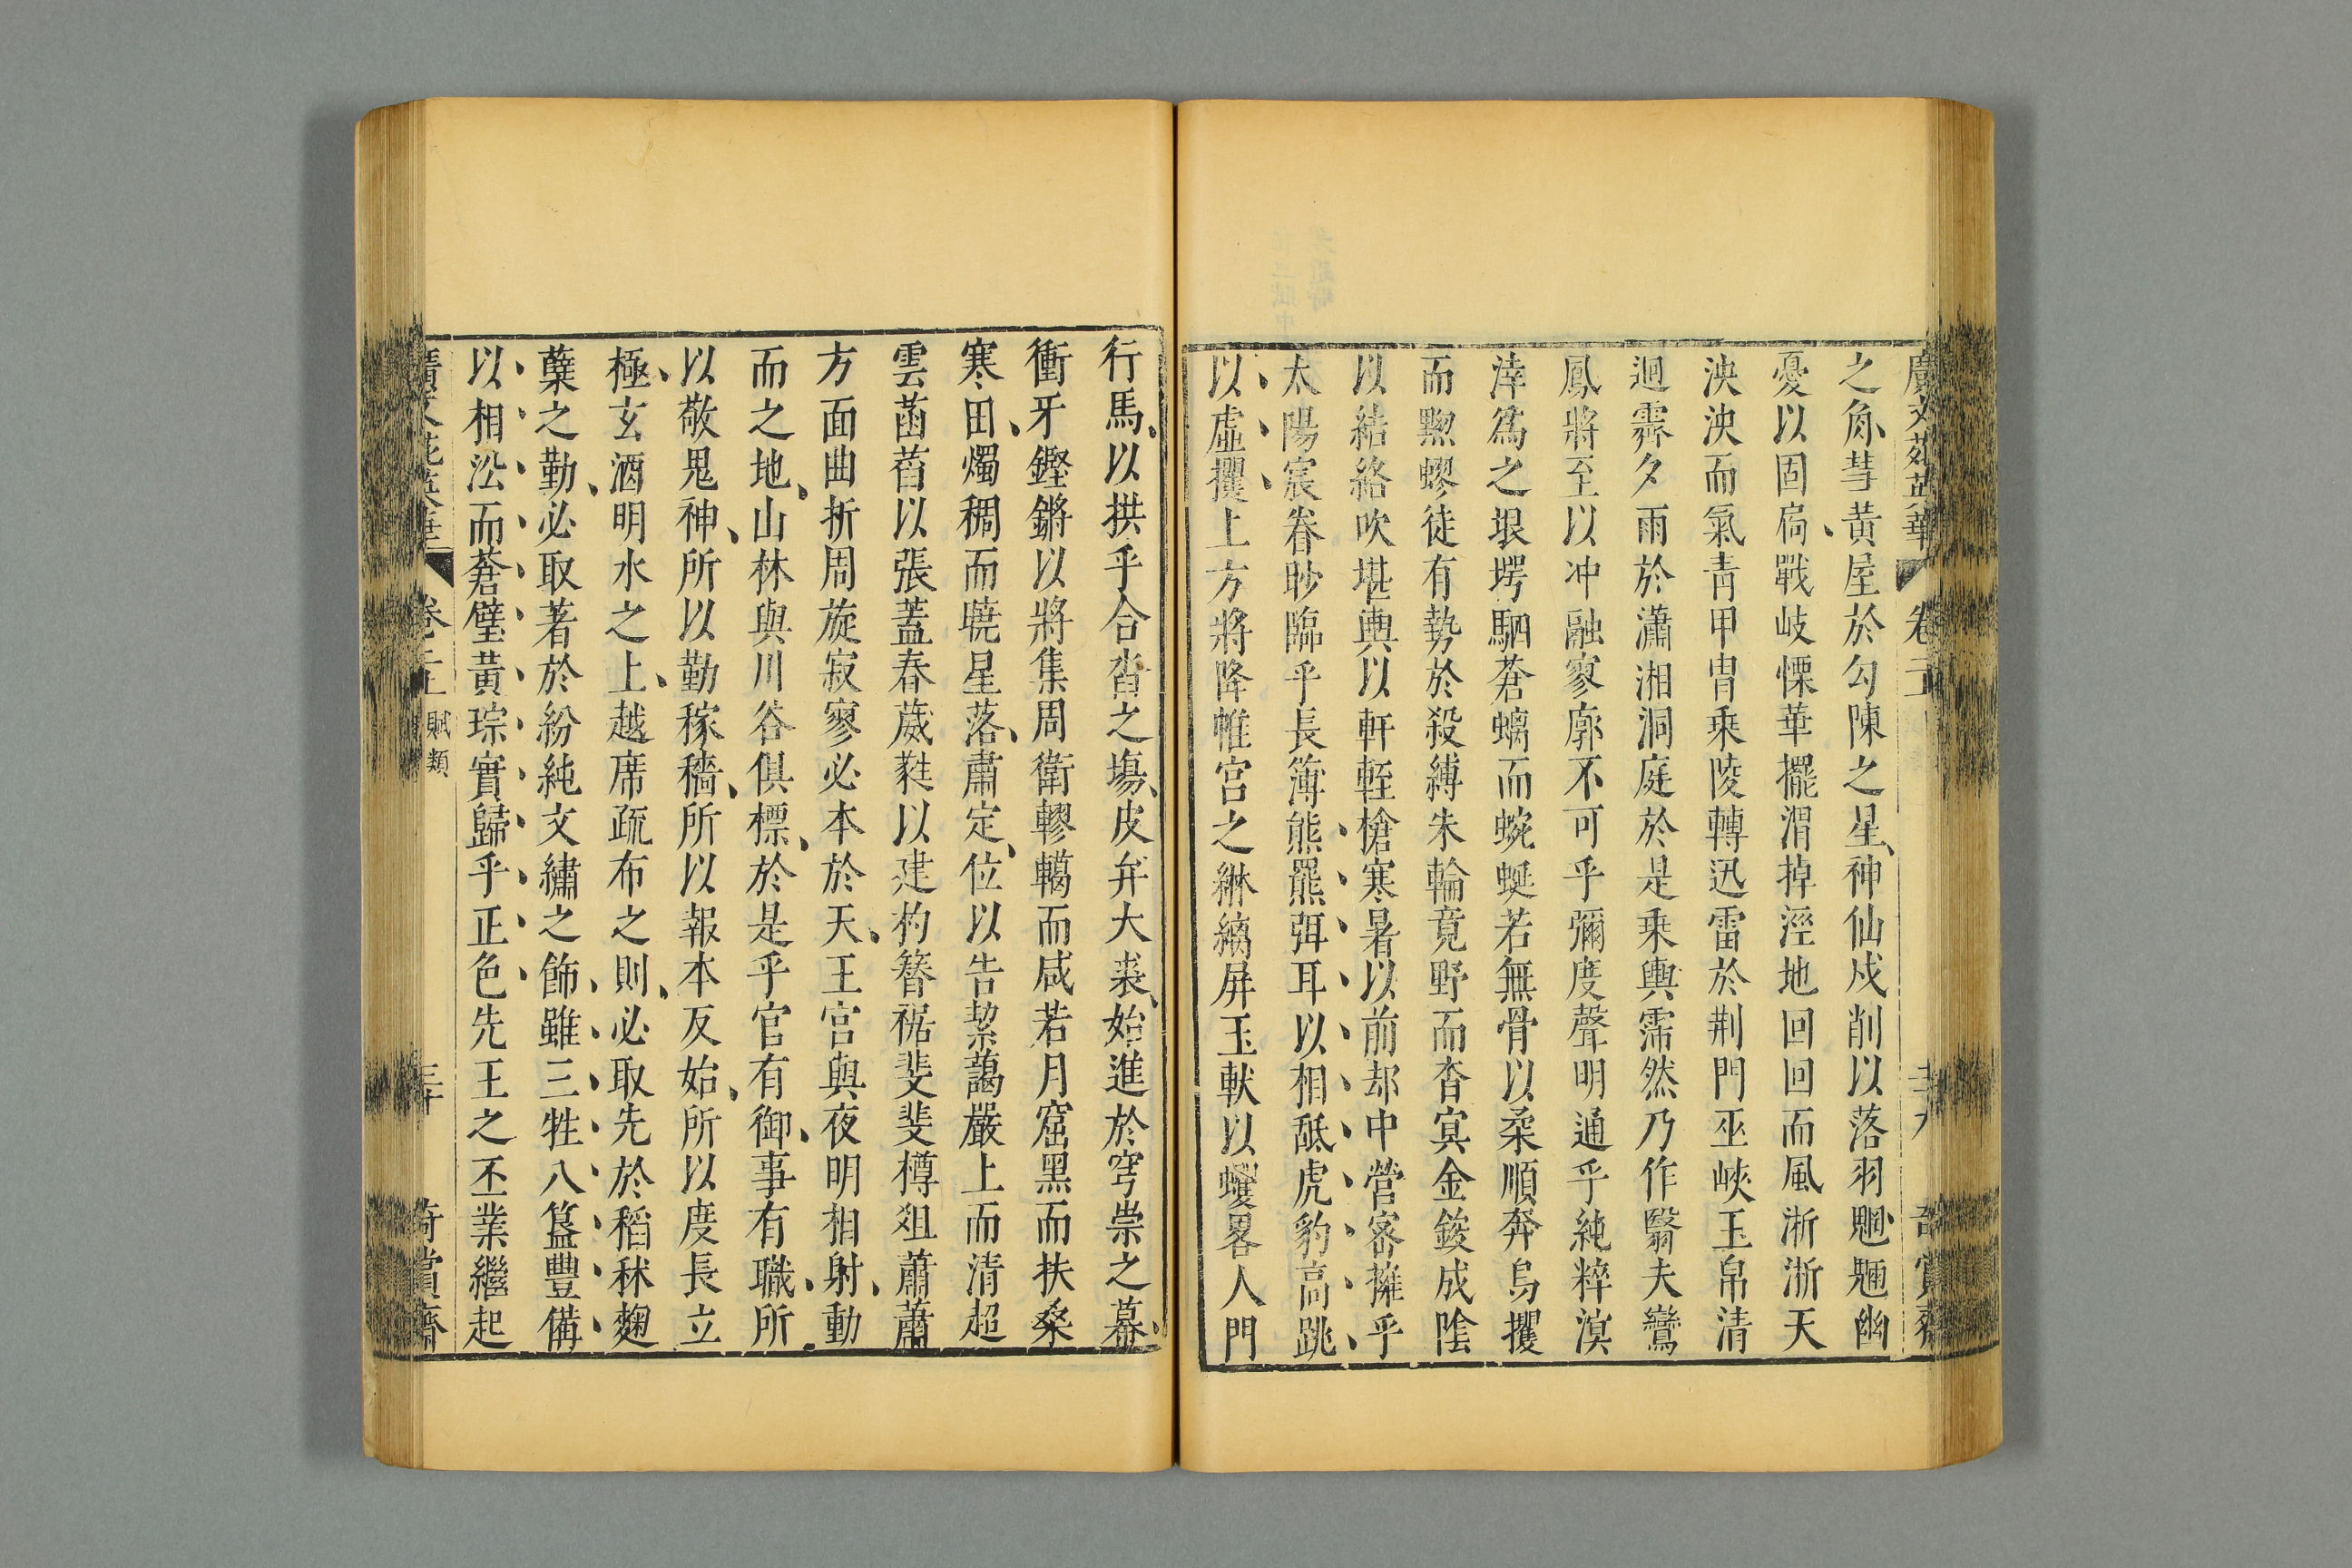 廣文苑英華 卷二 賞齋
之魚彗黃屋於勾陳之星神仙戍削以落羽魍魎幽
憂以固扃戰岐慄華擺渭掉涇地回回而風淅淅天
泱泱而氣青甲冑乘陵轉迅雷於荆門巫峽玉帛清
迥霽夕雨於瀟湘洞庭於是乘輿霈然乃作翳夫鸞
鳳將至以冲融寥廓不可乎彌度聲明通乎純粹溟
涬爲之垠堮駟蒼螭而蜿蜒若無骨以柔順奔烏攫
而黝蟉徒有勢於殺縛朱輪竟野而杳冥金鍐成陰
以結絡吹堪輿以軒輊槍寒暑以前却中營密擁乎
太陽宸眷眇臨乎長簿熊羆弭耳以相舐虎豹高跳
以虛攫上方將降帷宮之綝縭屏玉軑以蠖畧人門
行馬以拱乎合沓之塲皮弁大裘始進於穹崇之幕
衝牙鏗鏘以將集周衛轇轕而咸若月窟黑而扶桑
寒田燭稠而曉星落肅定位以告挈藹嚴上而清超
雲菡萏以張蓋春葳蕤以建杓簪裾斐斐樽俎蕭蕭
方面曲折周旋寂寥必本於天王宮與夜明相射動
而之地山林與川谷俱標於是乎官有御事有職所
以敬鬼神所以勤稼穡所以報本反始所以度長立
極玄酒明水之上越席疏布之則必取先於稻秫麴
糱之勤必取著於紛純文繡之飾雖三牲八簋豐備
以相沿而蒼璧黃琮實歸乎正色先王之丕業繼起
卷二 賦類 三十 奇賞齋